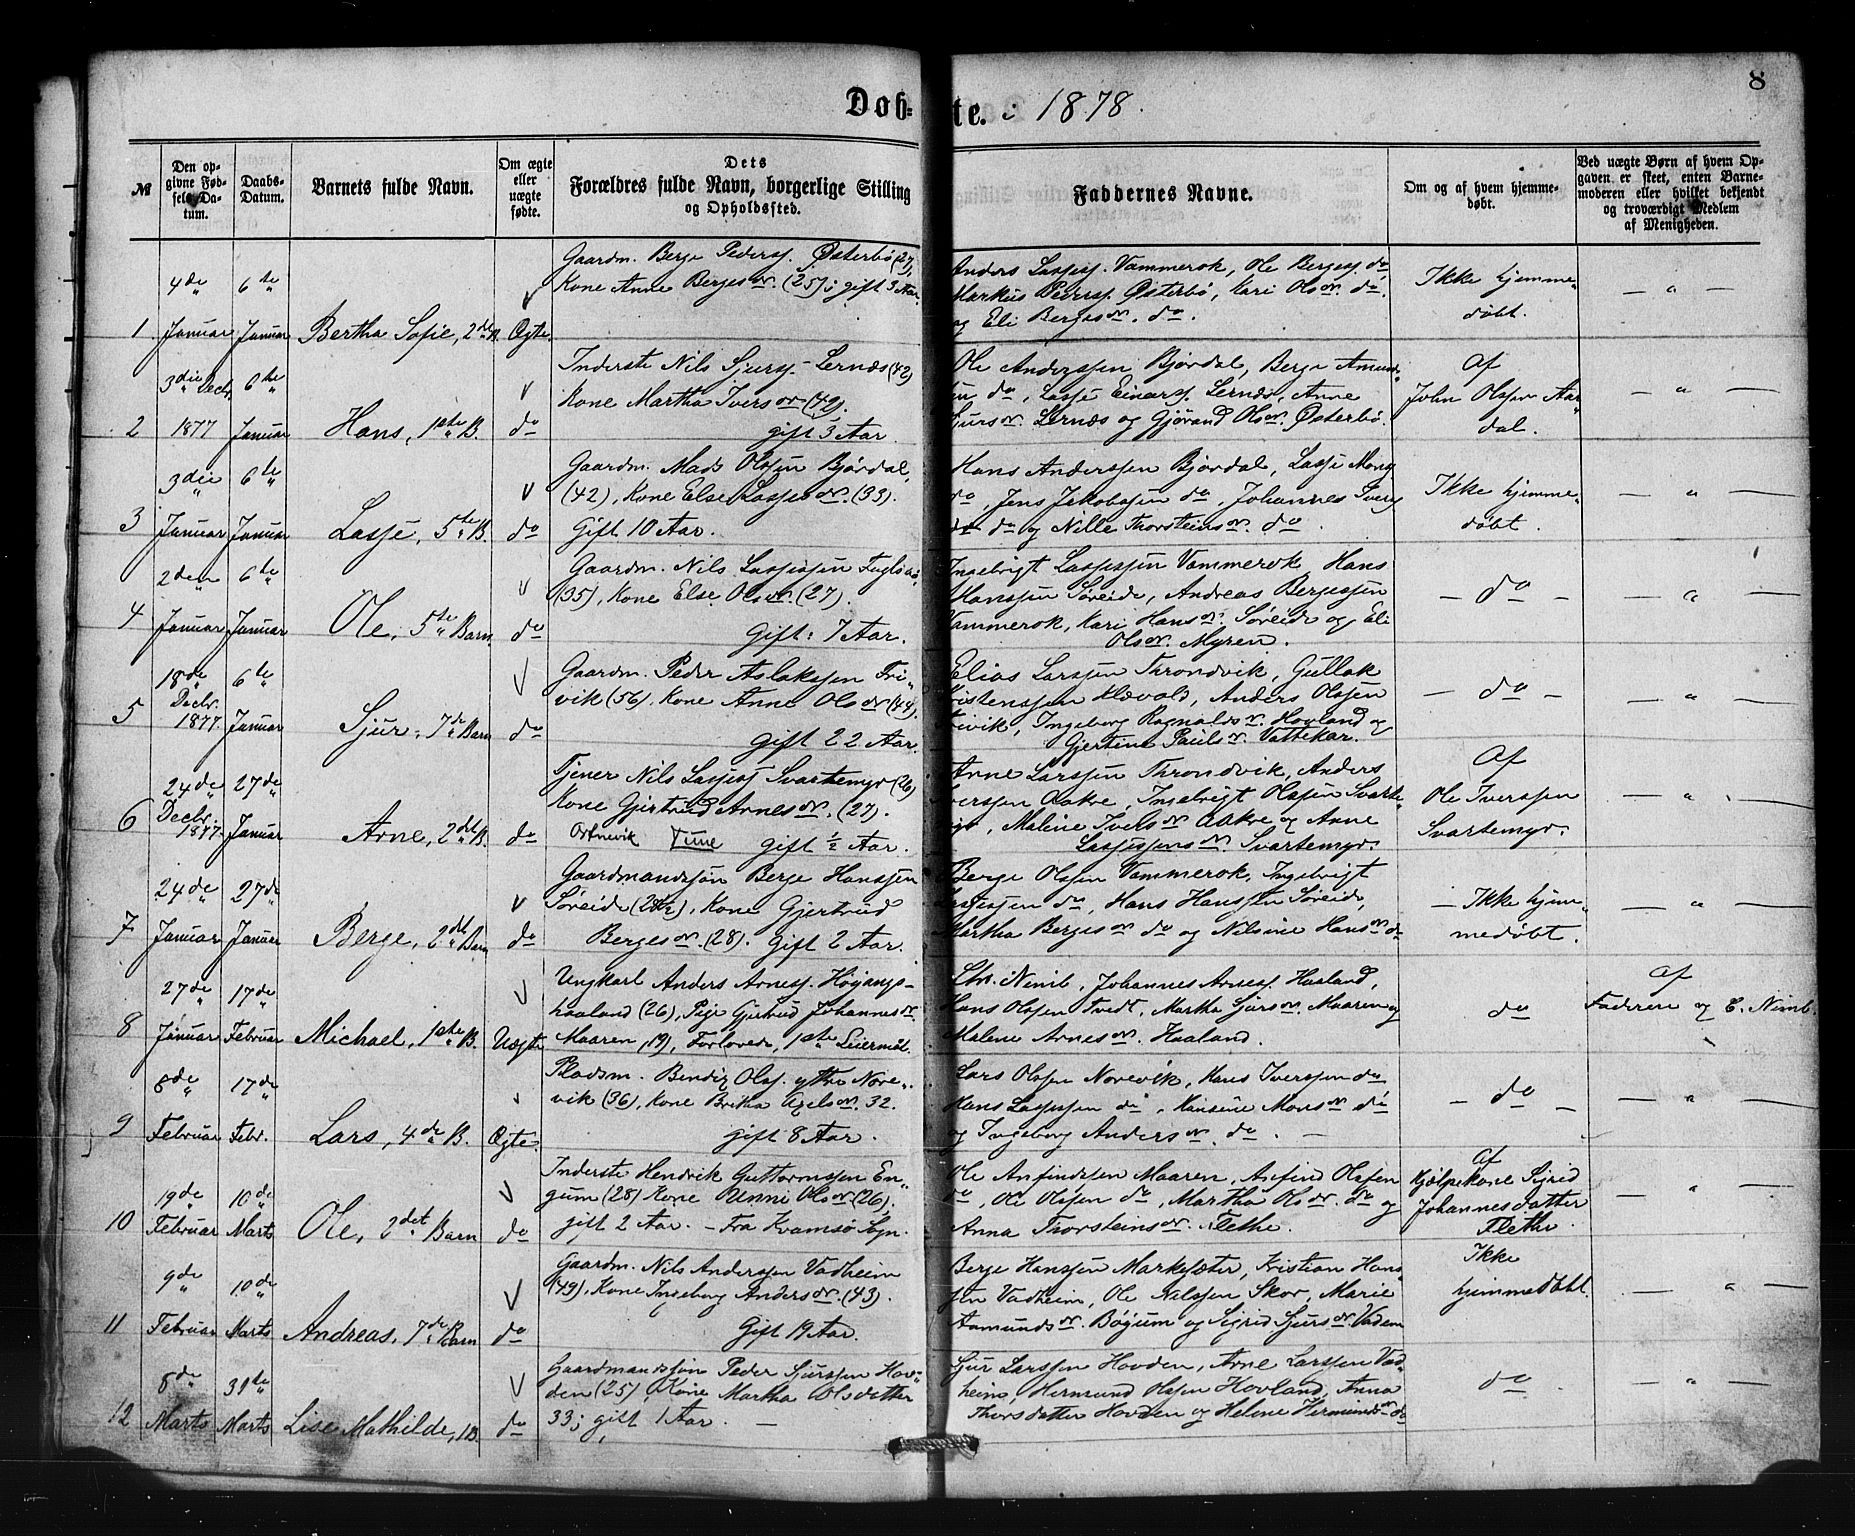 8
Døbte. i 1878.
№
Den opgivne Fødsels Datum.
Daabs-Datum.
Barnets fulde Navn.
Om ægte eller uægte fødte.
Dets Forældres fulde Navn, borgerlige Stilling og Opholdssted.
Faddernes Navne.
Om og af hvem hjemmedøbt.
Ved uægte Børn af hvem Opgaven er skeet, enten Barnemoderen eller hvilket bekjendt og troværdigt Medlem af Menigheden.
1 4de Januar 6te Januar Bertha Sofie, 2det B. Ægte.
Gaardm. Berge Peders. Østerbø (27),
Kone Anne Bergesdr. (25); gift 3 Aar.
Anders Lasses. Vammerok, Ole Berges. do
Markus Peders. Østerbø, Kari Olsdr. do.
og Eli Bergesdr. do.
Ikke hjemmedøbt. — " —
2 3die Decbr. 1877 6te Januar Hans, 1ste B. do
Inderste Nils Sjurs. Lernæs (42)
Kone Martha Iversdr. (42).
gift 3 Aar.
Ole Anderssen Bjørdal, Berge Amund
do, Lasse Einars. Lernæs, Anne
Sjursdr. Lernæs og Gjørand Olsdr. Østerbø.
Af John Olsen Aardal. — " —
3 3die Januar 6te Januar Lasse, 5te B. do
Gaardm. Mads Olsen Bjørdal,
(42), Kone Else Lassesdr. (33).
Gift 10 Aar.
Hans Anderssen Bjørdal, Lasse Mons
do, Jens Jakobssen do, Johannes
do og Nille Thorsteinsdr. do.
Ikke hjemmedøbt. — " —
4 2den Januar 6te Januar Ole, 5te Barn do
Gaardm. Nils Lassessen Fuglsæ
(35), Kone Else Olsdr. (27).
Gift: 7 Aar.
Ingebrigt Lassessen Vammerok, Hans
Hanssen Søreide, Andreas Bergessen
Vammerok, Kari Hansdr. Søreide og Eli
Olsdr. Myren.
— do — — " —
5 18de Decbr. 1877. 6te Januar Sjur, 7de Barn do
Gaardm. Peder Aslaksen Frivik (56), Kone Anne Olsdr (44).
Gift 22 Aar.
Elias Larssen Throndvik, Gullak
Kristenssen Hævold, Anders Olsen
Frivik, Ingeborg Ragnaldsdr. Hovland og
Gjertine Paulsdr. Vattekar.
— do — — " —
6 24de Decbr. 1877. 27de Januar Arne, 2det B. do
Tjener Nils Lasses. Svartemyr (26)
Kone Gjertrud Arnesdr. (27).
Ortnevik gift ½ Aar.
Arne Larssen Throndvik, Anders
Iverssen Aakre, Ingebrigt Olsen Svarte
Malene Iversdr Aakre og Anne
Lassessensdr. Svartemyr.
Af Ole Iverssen Svartemyr. — " —
7 24de Januar 27de Januar Berge, 2det Barn do
Gaardmandssøn Berge Hanssen
Søreide (28½), Kone Gjertrud
Bergesdr. (28). Gift 2 Aar.
Berge Olsen Vammerok, Ingebrigt
Lassessen do, Hans Hanssen Søreide,
Martha Bergesdr do og Nilsine Hansdr do
— Ikke hjemmedøbt. — " —
8 27de Januar 17de Februar Michael, 1ste B. Uægte
Ungkarl Anders Arnes. Høyangshaaland (26), Pige Gjertrud Johannesdr.
Maaren, 19, Forlovede, 1ste Leiermål.
Chr. Nimb, Johannes Arnes. Haaland,
Hans Olsen Tvedt, Martha Sjursdr. Maaren og
Malene Arnesdr. Haaland.
do
af Faderen og C. Nimb.
9 8de Februar 17de Febr. Lars, 4de B. Ægte.
Pladsm. Bendix Ols. ytre Norevik (36), Kone Britha Axelsdr. 32.
gift 8 Aar.
Lars Olsen Norevik, Hans Iverssen do
Hans Lassessen do, Hansine Monsdr do
og Ingeborg Andersdr. do.
— do — — " —
10 19de Februar 10de Marts Ole, 2det Barn do
Inderste Hendrik Guttormssen Engum (28) Kone Unni Olsdr (26),
gift 2 Aar. — Fra Kvamsø Sogn.
Ole Anfindssen Maaren, Anfind Olsen
do, Ole Olsen do, Martha Olsdr. do og
Anna Thorsteinsdr. Flethe.
af Hjælpekone Sigrid Johannesdatter Flethe. — " —
11 9de Februar 10de Marts Andreas, 7de Barn do
Gaardm. Nils Anderssen Vadheim
(49), Kone Ingeborg Andersdr. (43).
Gift 19 Aar.
Berge Hanssen Markesæter, Kristian Hanssen Vadheim, Ole Nilssen Skor, Marie
Aamundsdr. Bøgum og Sigrid Sjursdr Vadem
Ikke hjemmedøbt. — " —
12 8de Marts 31te Marts Lise Mathilde, 1 B. do
Gaardmandssøn Peder Sjurssen Hovden (25), Kone Martha Olsdatter
33; gift 1 Aar. —
Sjur Larssen Hovden, Arne Larssen Vadheim, Hermund Olssen Hovland, Anna
Thorsdatter Hovden og Helene Hermundsdr do
do — " —